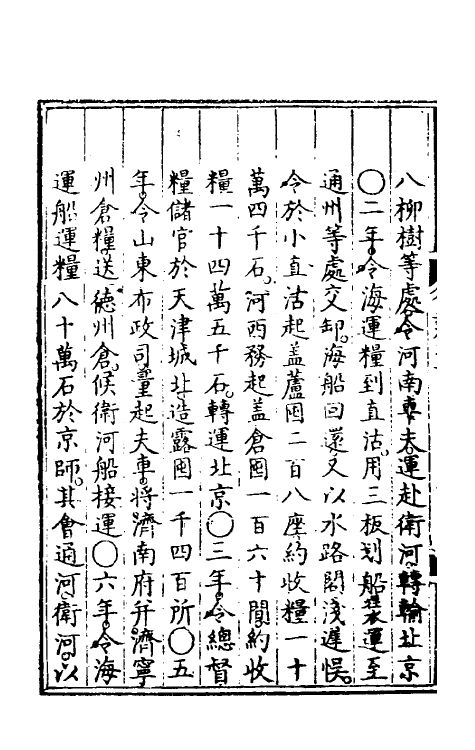 八柳樹等處令河南車夫運赴衛河轉輸北京
〇二年令海運糧到直沽用三板划船裝運至
通州等處交卸海船回還又以水路閣淺遲悞
令於小直沽起盖蘆囤二百八座約收糧一十
萬四千石河西務起盖倉囤一百六十間約收
糧一十四萬五千石轉運北京〇三年令總督
糧儲官於天津城北造露囤一千四百所〇五
年令山東布政司量起夫車將濟南府并濟寧
州倉糧送德州倉候衛河船接運〇六年令海
運船運糧八十萬石於京師其會通河衛河以